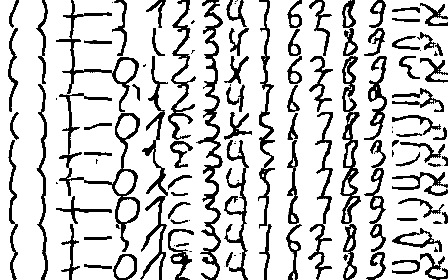 ( ) + - 0 1 2 3 4 5 6 7 8 9
( ) + - 0 1 2 3 4 5 6 7 8 9
( ) + - 0 1 2 3 4 5 6 7 8 9
( ) + - 0 1 2 3 4 5 6 7 8 9
( ) + - 0 1 2 3 4 5 6 7 8 9
( ) + - 0 1 2 3 4 5 6 7 8 9
( ) + - 0 1 2 3 4 5 6 7 8 9
( ) + - 0 1 2 3 4 5 6 7 8 9
( ) + - 0 1 2 3 4 5 6 7 8 9
( ) + - 0 1 2 3 4 5 6 7 8 9